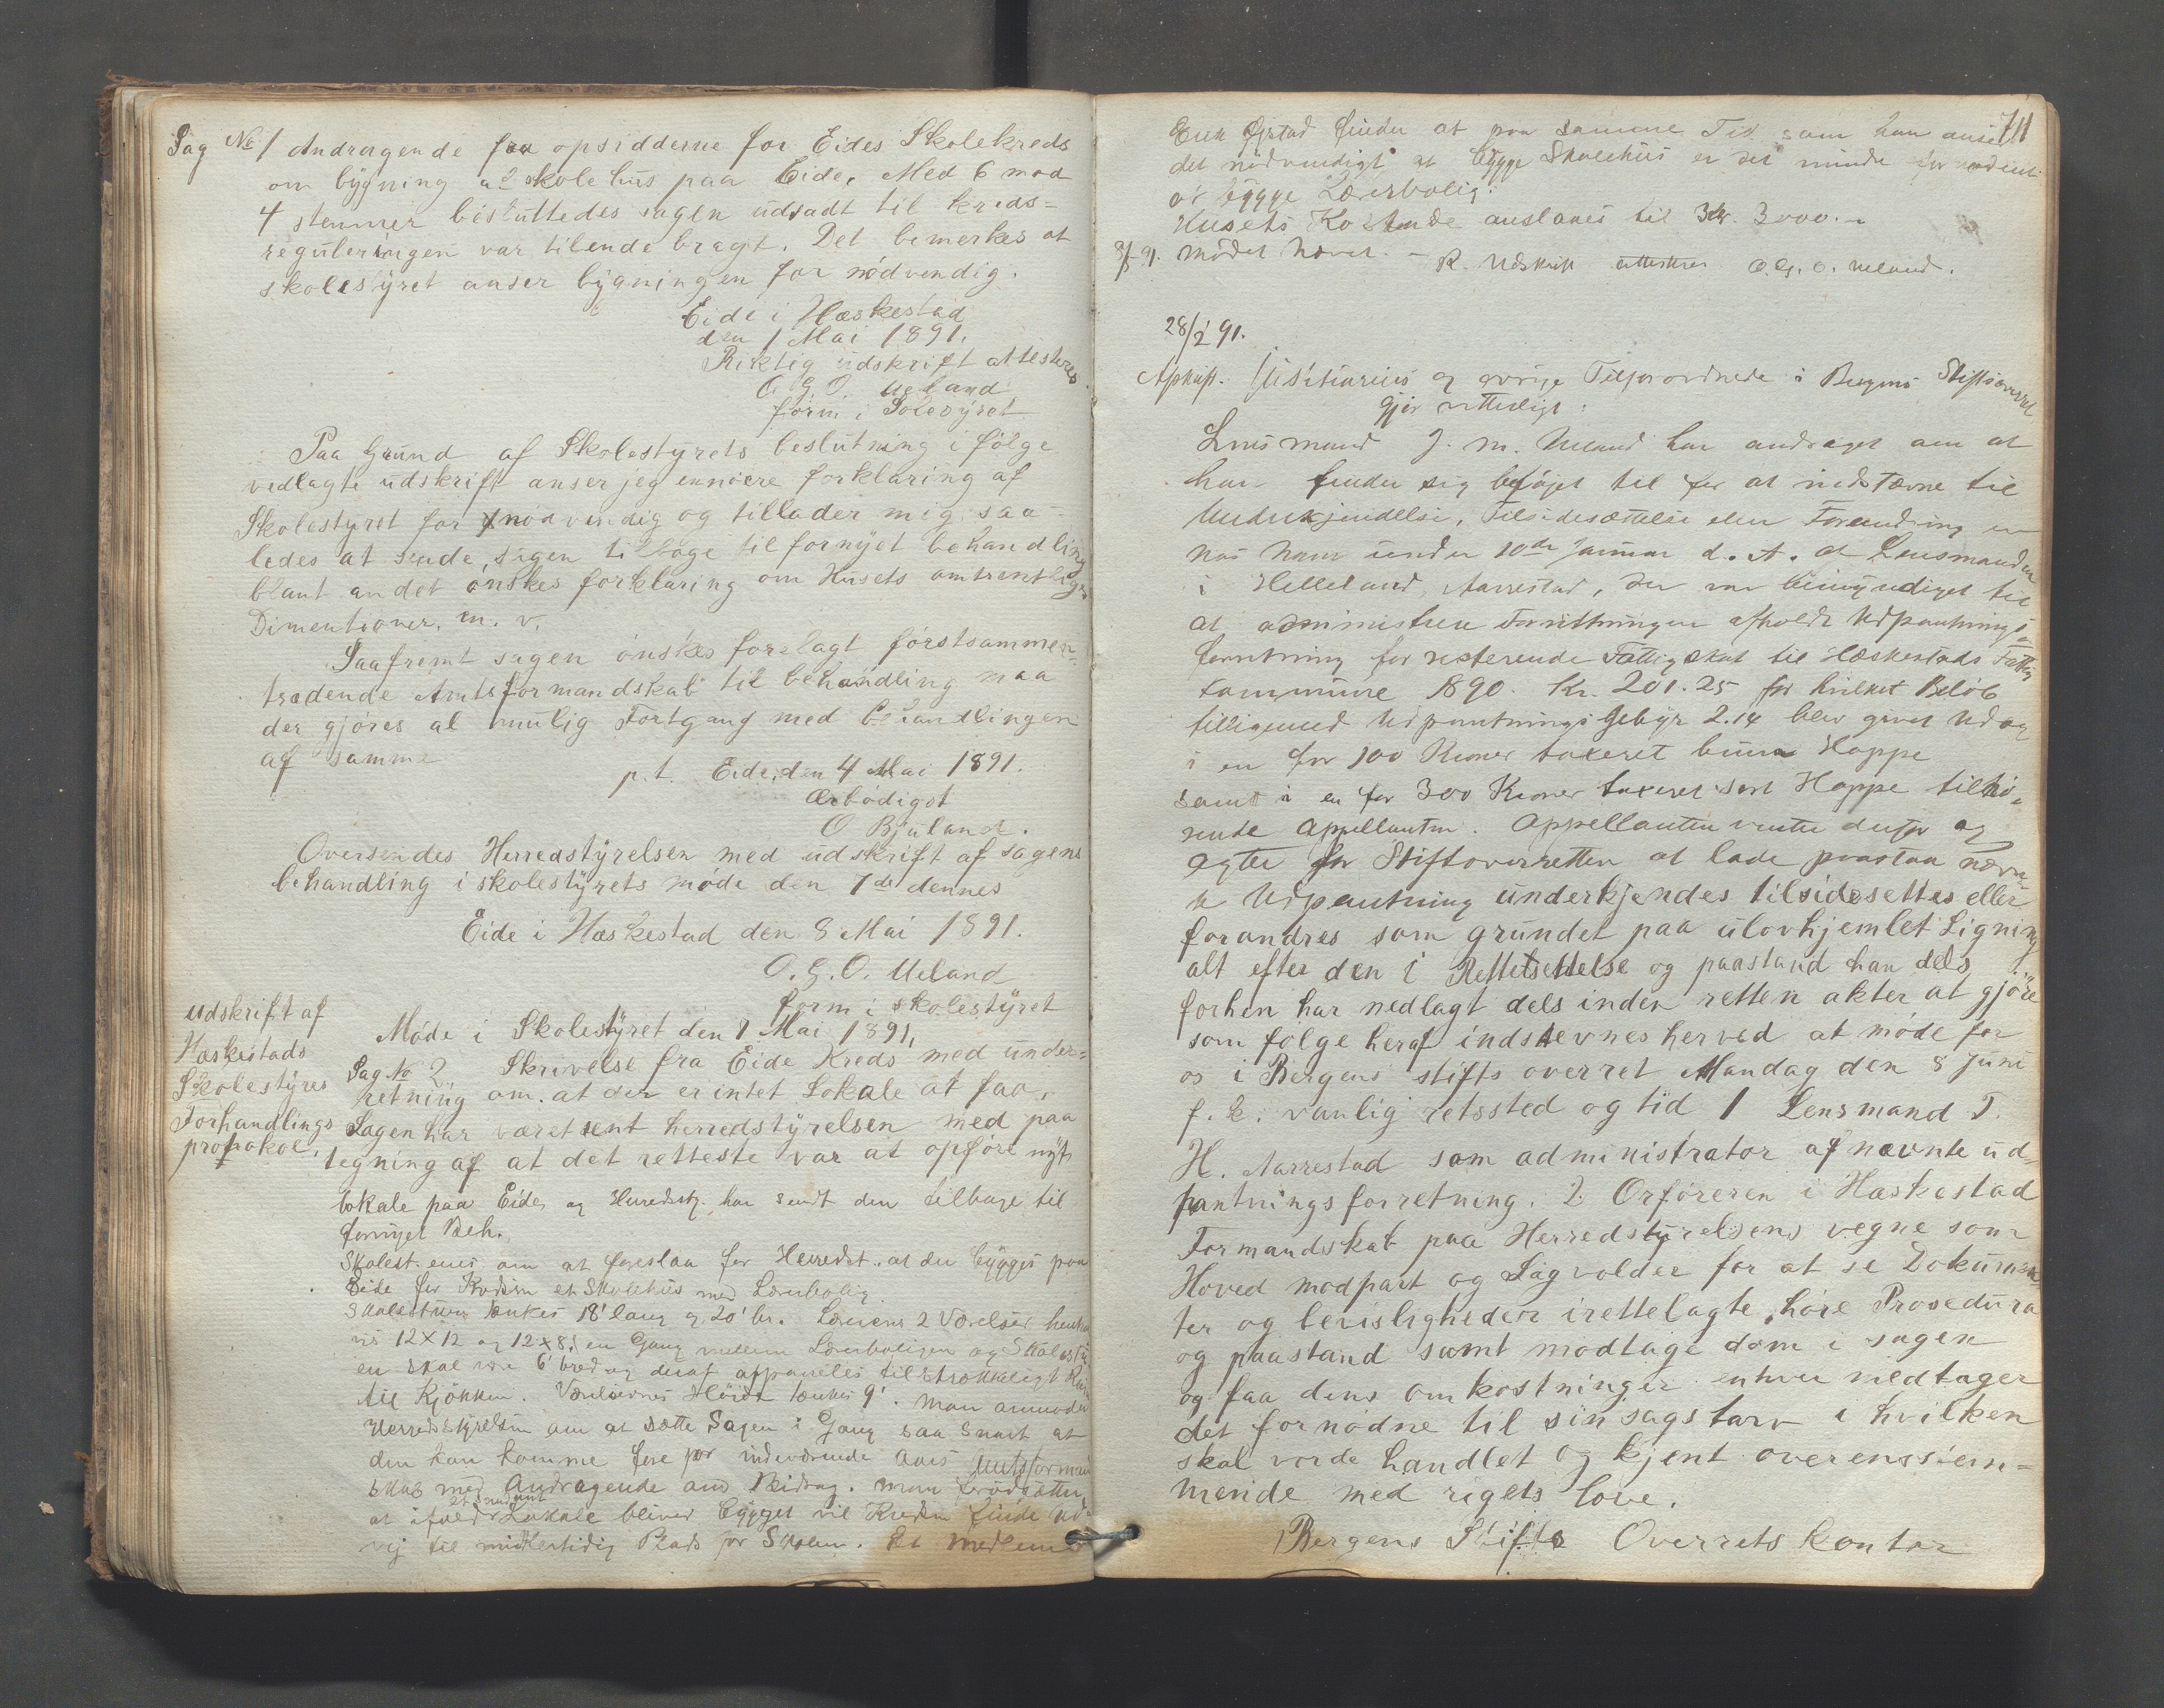 Sag No 1 Andragende fra opsidderne for Eides Skolekreds
om bygning a? skolehus paa Eide. Med 6 mod
4 stemmer besluttedes sagen udsadt til kreds=
reguleringen var tilendebragt. Det bemerkes at
skolestyret anser bygningen for nødvendig.
Eide i Hæskestad
den 1 Mai 1891.
Riktig udskrift attesteres
O. G. O. Ueland
form i Solestyret
Paa Grund af Skolestyrets beslutning i følge
vedlagte udskrift anser jeg ennøiere forklaring af
Skolestyret for nødvendig og tillader mig saa-
ledes at sende sagen tilbage til fornyet behandling
blant andet ønskes forklaring om Husets omtrentlige
Dimentioner. m. v.
Saafremt sagen ønskes forelagt førstsammen-
trædende Amtsformandskab til behandling maa
der gjøres al mulig Fortgang med behandlingen
af samme
p. t. Eide, den 4 Mai 1891.
Ærbødigst
O Bjuland.
Oversendes Herredstyrelsen med udskrift af sagens
behandling i skolestyrets møde den 7de dennes
Eide i Hæskestad den 8 Mai 1891.
O. G. O. Ueland
form i skolestyret
udskrift af
Hæskestads
Skolestyres
Forhandlings
protokol.
Møde i Skolestyret den 7 Mai 1891,
Sag No 2 Skrivelse fra Eide Kreds med under=
retning om at der er intet Lokale at faa.
Sagen har været sent herredstyrelsen med paa
tegning af at det retteste var at opføre nyt
lokale paa Eide, og Herredsty. har sendt den tilbage til
fornyet Beh.
Skolest. enes om at foreslaa for Herredst. at der bygges paa
Eide for Kredsen et Skolehus med Lærerbolig.
Skolestuen tænkes 18' lang og 20' br. Lærerens 2 Værelser
12 X 12 og 12 X 8, en Gang mellem Lærerboligen og
en skal være 6' bred og deraf afpaneles tilstrækkeligt Rum
til Kjøkken. Værelsernes Høide tænkes 9'. Man anmoder
Herredstyrelsen om at sætte Sagen i Gang saa snart at
den kan komme fore for indeværende Aars Amtsforman
skab med Andragende om Bidrag. Man forudsætter,
at ifald et saadant Lokale bliver bygget vil Kredsen finde ud
vej til midlertidig Plads for Skolen. Et medlem
711
Erik Ørstad finder at paa samme Tid som han anser
det nødvendigt at bygge Skolehus er det mindre fornødent
at bygge Lærerbolig.
Husets Kostende anslaaes til Kr. 3000.-
8/5 91. Mødet hævet. - R. Udskrift attesteres O. G. O. Ueland.
28/2 91.
Afskrift. Justitiarius og øvrige Tilforordnede i Bergens Stiftsoverret
Gjør vitterligt:
Lensmand J. M. Ueland har andraget om at
han finder sig beføjet til for at indstævne til
Underkjendelse, Tilsidesættelse eller Forandring en
hos ham under 10de Januar d. A. af Lensmanden
i Helleland, Aarrestad, der var bemyndiget til
at administrere Forretningen afholdt Udpantnings
forretning for resterende Fattigskat til Hæskestads Fattig
kommune 1890. Kr. 201.25 for hvilket Beløb
tilligemed Udpantnings Gebyr 2.14 blev givet Udlæg
i en for 100 Kroner taxeret brun Hoppe
samt i en for 300 Kroner taxeret sort Hoppe tilhø-
rende Appellanten. Appellanten venter derfor og
agter for Stiftsoverretten at lade paastaa nævn-
te Udpantning underkjendes tilsidesettes eller
forandres som grundet paa ulovhjemlet Ligning
alt efter den i Rettesettelse og paastand han dels
forhen har nedlagt dels inden retten akter at gjøre
som følge heraf indstevnes herved at møde for
os i Bergens stifts overret Mandag den 8 Juni
f. k. vanlig retssted og tid 1 Lensmand T.
H. Aarrestad som administrator af nævnte ud-
pantningsforretning. 2 Orføreren i Hæskestad
Formandskab paa Herredstyrelsens vegne som
Hoved modpart og Sagvolder for at se Dokumen-
ter og bevisligheder irettelagte, høre Prosedura
og paastand samt modtage dom i sagen
og faa dens omkostninger enhver medtager
det fornødne til sin sags tarv i hvilken
skal vorde handlet og kjent overensstem=
mende med rigets love.
Bergens Stifts Overrets kontor